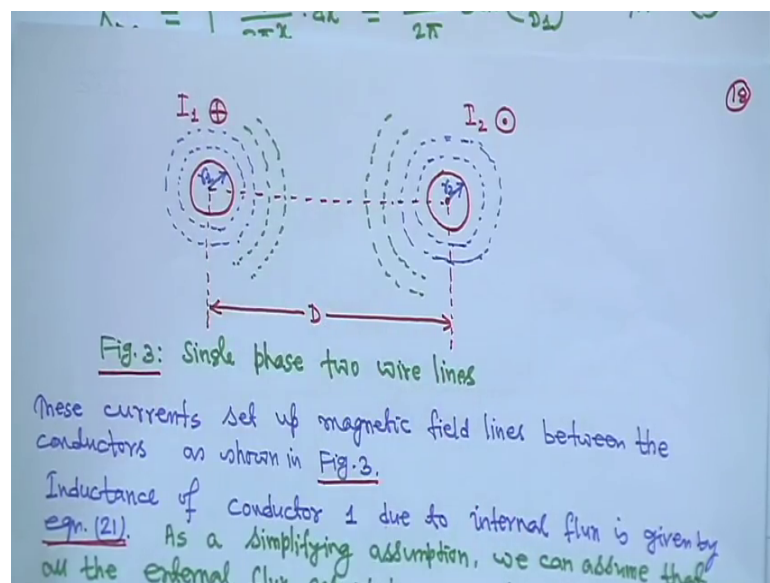 2πx
2π
18
I₁ ⊕
I₂ ⊙
r₁
r₂
D
Fig. 3: Single phase two wire lines
These currents set up magnetic field lines between the
conductors as shown in Fig. 3.
Inductance of conductor 1 due to internal flux is given by
eqn. (21). As a simplifying assumption, we can assume that
all the external flux